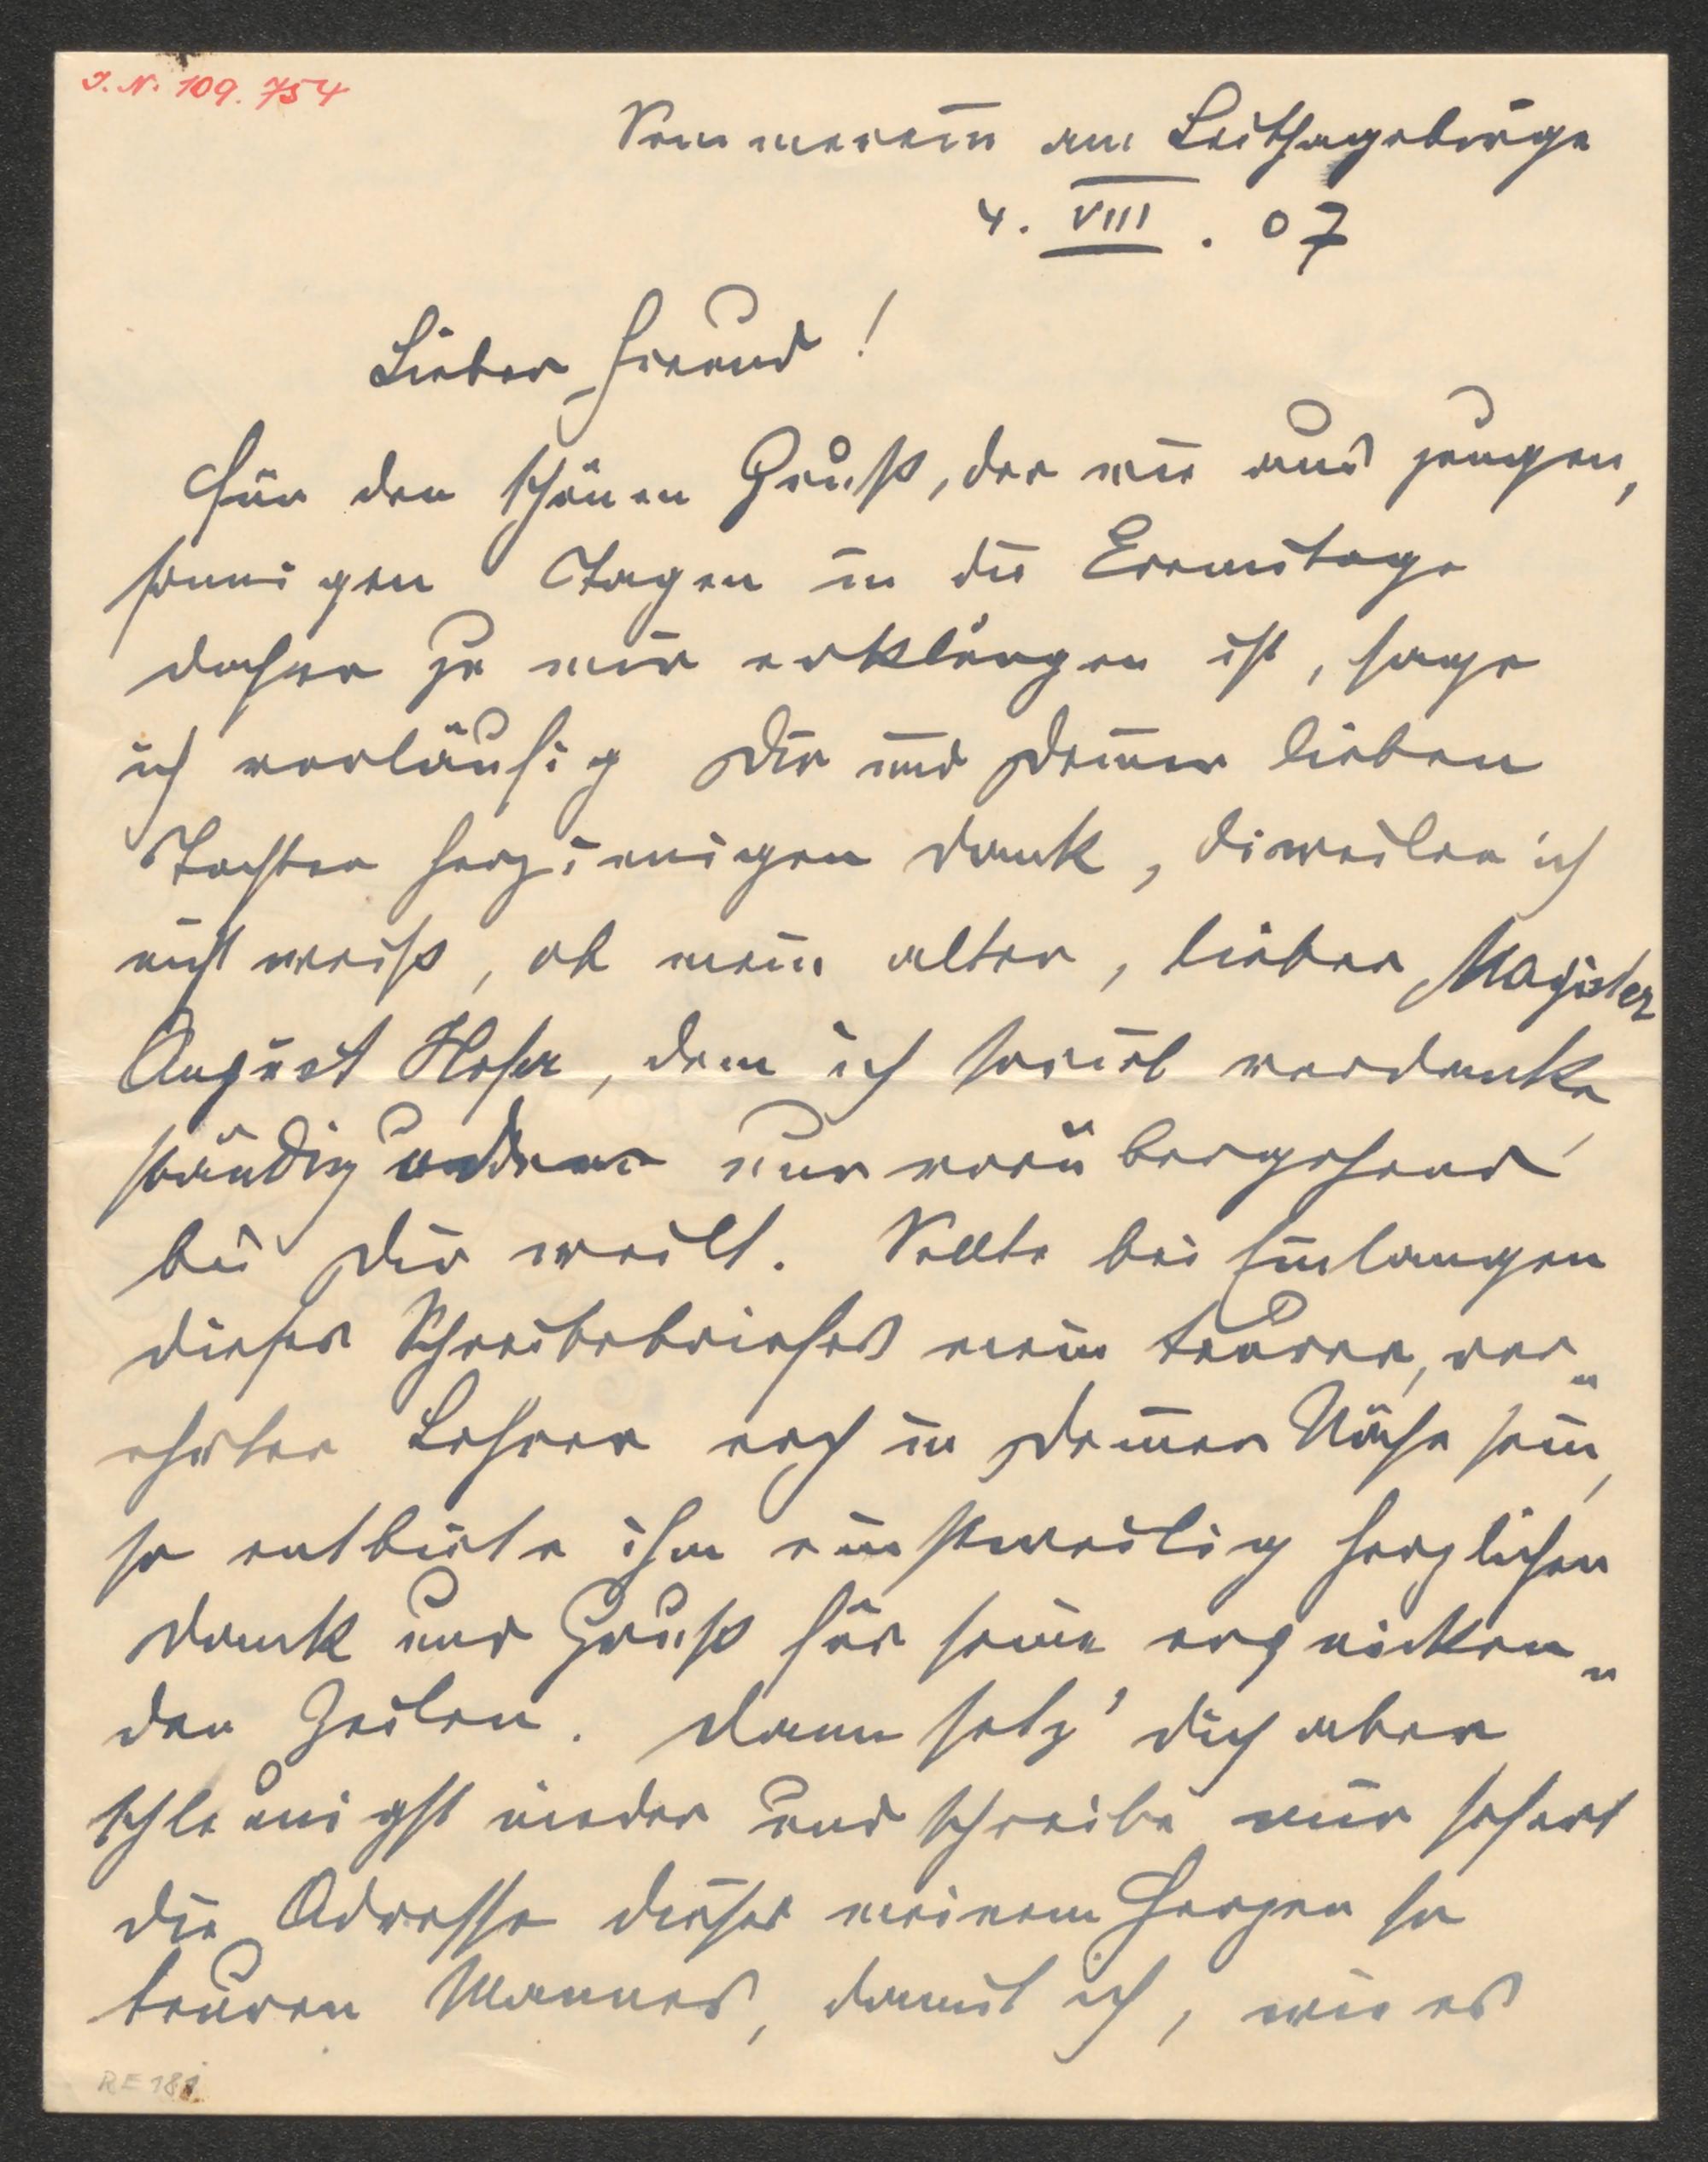 I. N. 109.754
Sommerein am Leithagebirge
4. VIII. 07
Lieber Freund!
Für den schönen Gruß, der wie aus jungen,
sonnigen Tagen in die Eremitage
daher zu mir erklungen ist, sage
ich vorläufig Dir und Deiner lieben
Tochter herzinnigen Dank, dieweilen ich
nicht weiß, ob mein alter, lieber Magister
August Hofer, dem ich soviel verdanke
ständig oder nur vorübergehend
bei Dir weilt. Sollte bei Einlangen
dieses Schreibebriefes mein teurer, ver„
ehrter Lehrer noch in Deiner Nähe sein,
so entbiete ihm einstweilig herzlichen
Dank und Gruß für seine erquicken„
den Zeilen. Dann setz' dich aber
schleunigst nieder und schreibe mir sofort
die Adresse dieses meinem Herzen so
teuren Mannes, damit ich, wie es
RE 181